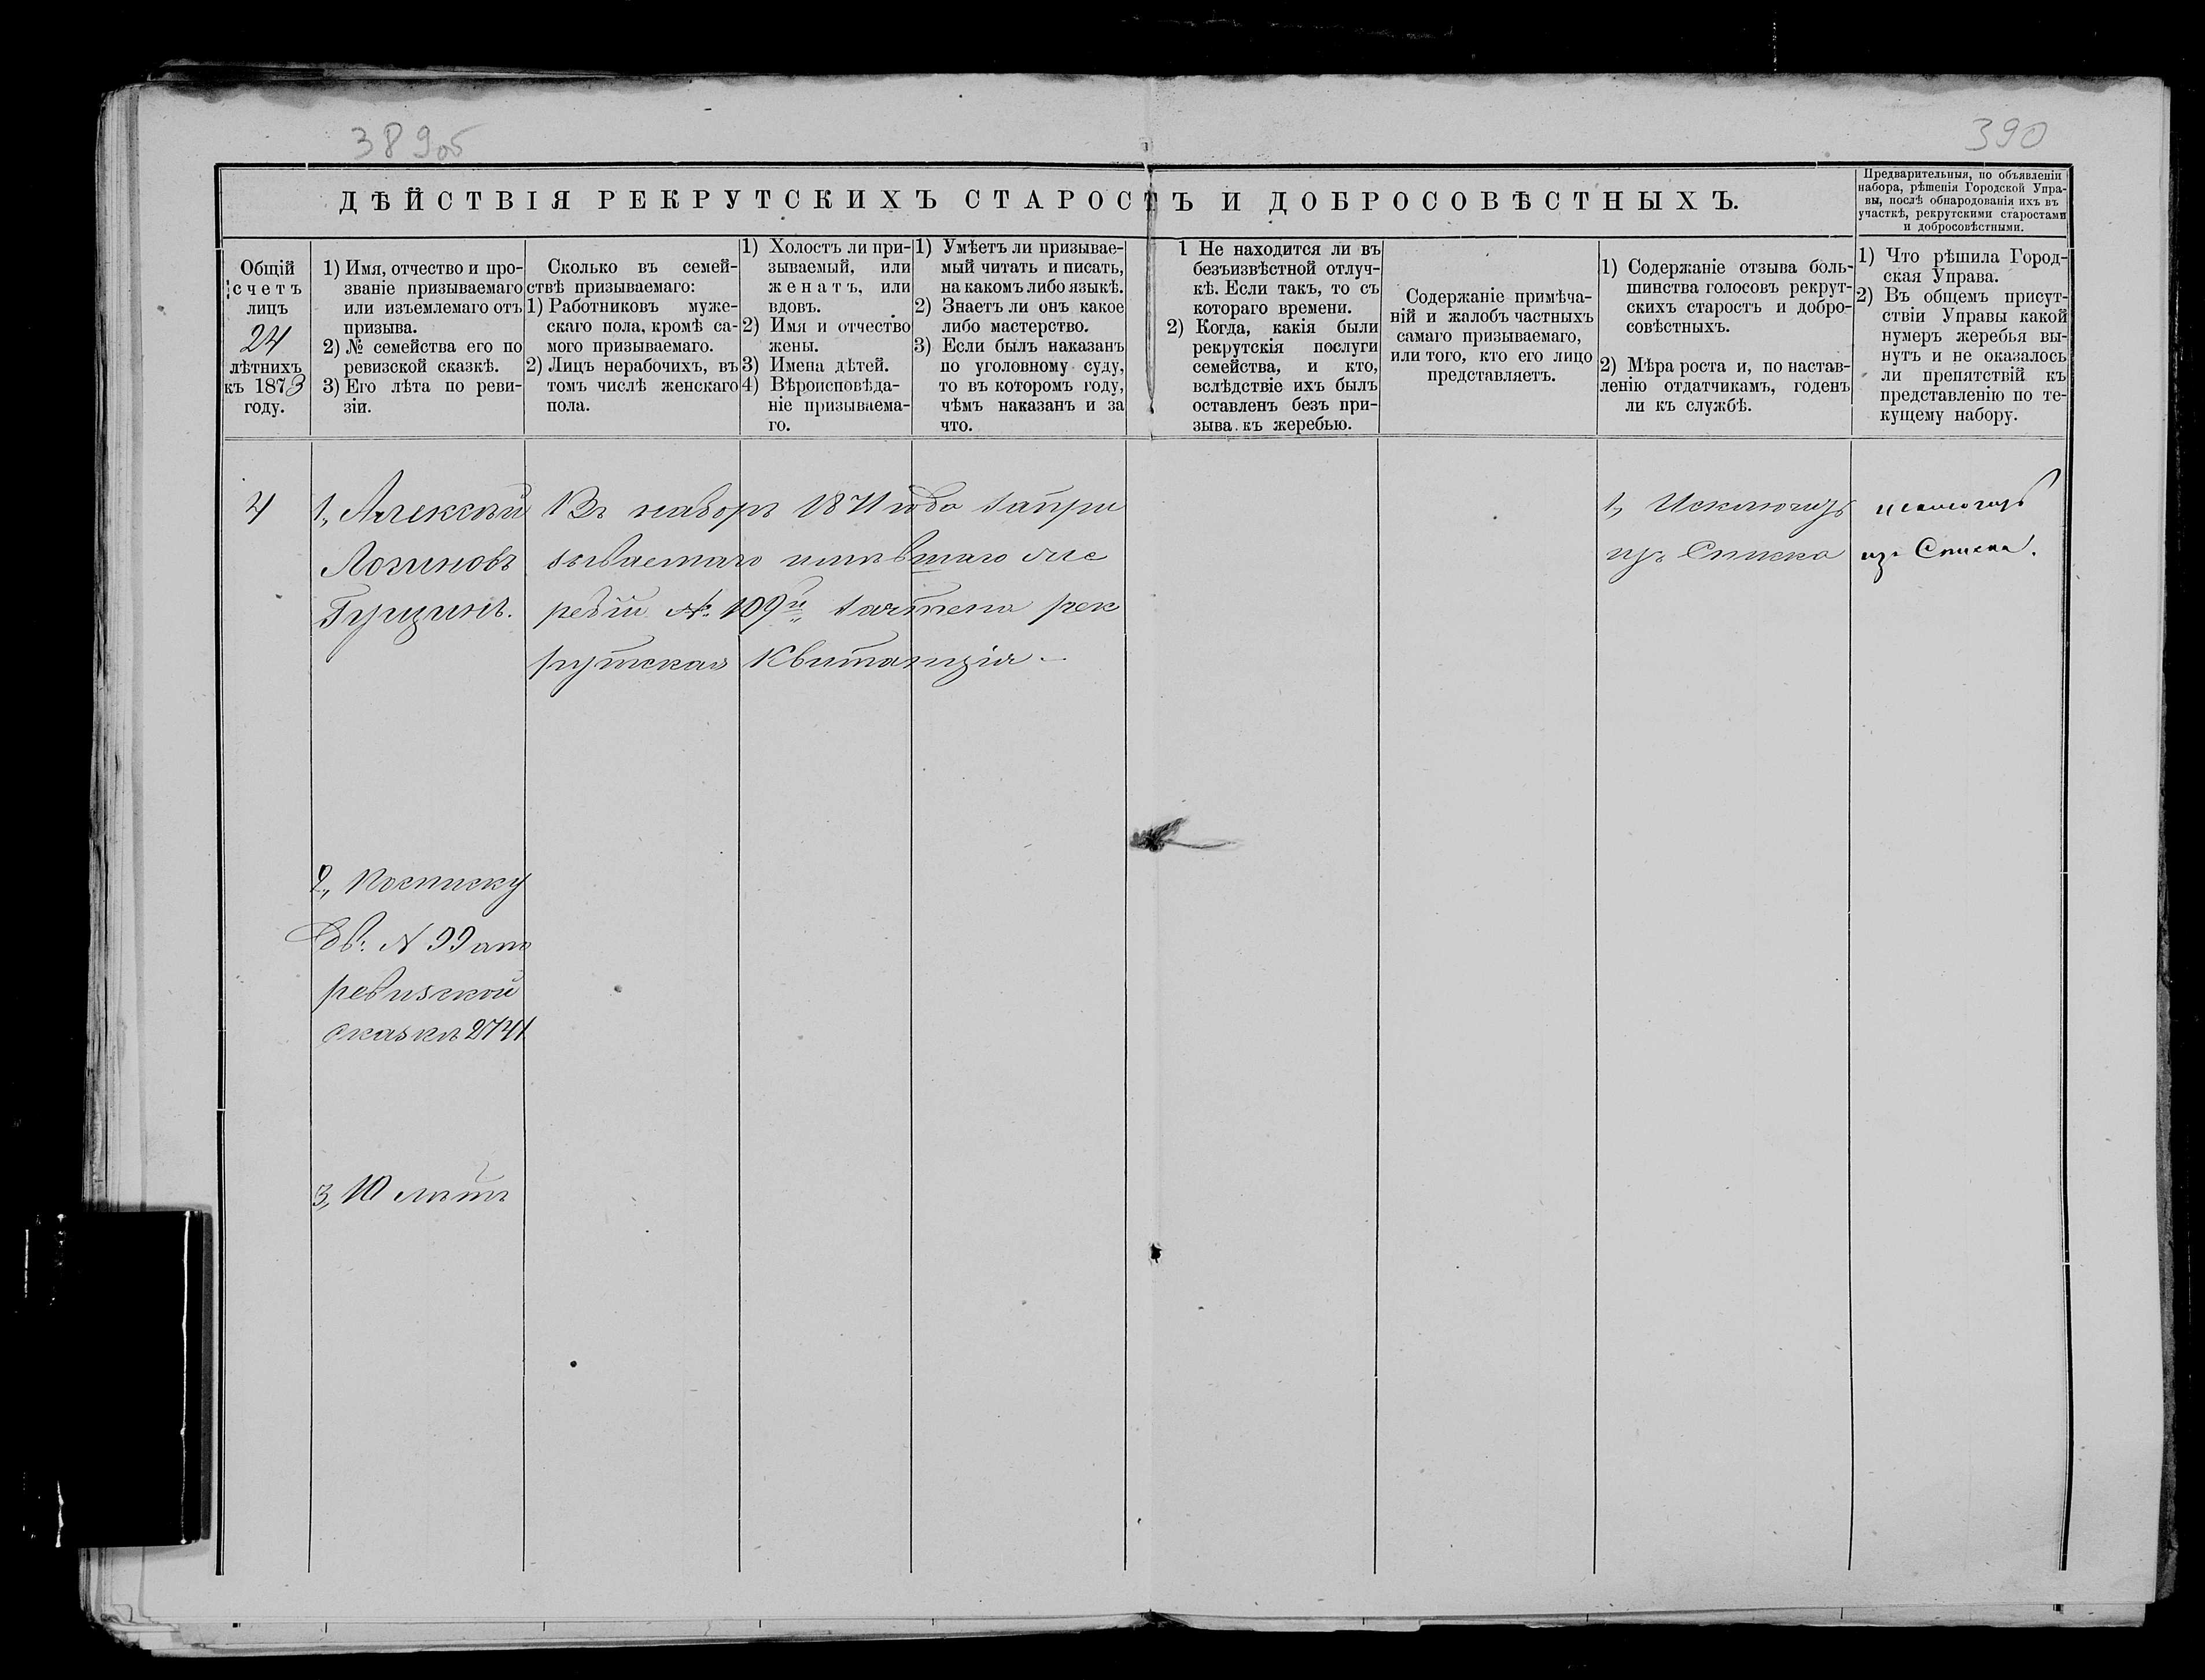 389об
390
ДѢЙСТВІЯ РЕКРУТСКИХЪ СТАРОСТЪ И ДОБРОСОВѢСТНЫХЪ.
Предварительныя, по объявленіи
набора, рѣшенія Городской Упра-
вы, послѣ обнародованія ихъ въ
участкѣ, рекрутскими старостами
и добросовѣстными.
Общій
счетъ
лицъ
24
лѣтнихъ
къ 1873
году.
1) Имя, отчество и про-
званіе призываемаго
или изъемлемаго отъ
призыва.
2) № семейства его по
ревизской сказкѣ.
3) Его лѣта по реви-
зіи.
Сколько въ семей-
ствѣ призываемаго:
1) Работниковъ муже-
скаго пола, кромѣ са-
мого призываемаго.
2) Лицъ нерабочихъ, въ
томъ числѣ женскаго
пола.
1) Холостъ ли при-
зываемый, или
женатъ, или
вдовъ.
2) Имя и отчество
жены.
3) Имена дѣтей.
4) Вѣроисповѣда-
ніе призываема-
го.
1) Умѣетъ ли призывае-
мый читать и писать,
на какомъ либо языкѣ.
2) Знаетъ ли онъ какое
либо мастерство.
3) Если былъ наказанъ
по уголовному суду,
то въ которомъ году,
чѣмъ наказанъ и за
что.
1 Не находится ли въ
безъизвѣстной отлуч-
кѣ. Если такъ, то съ
котораго времени.
2) Когда, какія были
рекрутскія послуги
семейства, и кто,
вслѣдствіе ихъ былъ
оставленъ безъ при-
зыва къ жеребью.
Содержаніе примѣча-
ній и жалобъ частныхъ
самаго призываемаго,
или того, кто его лицо
представляетъ.
1) Содержаніе отзыва боль-
шинства голосовъ рекрут-
скихъ старостъ и добро-
совѣстныхъ.
2) Мѣра роста и, по настав-
ленію отдатчикамъ, годенъ
ли къ службѣ.
1) Что рѣшила Город-
ская Управа.
2) Въ общемъ присут-
ствіи Управы какой
нумеръ жеребья вы-
нутъ и не оказалось
ли препятствій къ
представленію по те-
кущему набору.
4
1, Алексѣй
Логиновъ
Гущинъ.
Въ наборъ 1871 года запри
зываемаго имѣвшаго же
ребій № 109й зачтена рек
рутская Квитанція
1, Исключить
изъ Списка
исключить
изъ Списка.
2, Посписку
№ 99 апо
ревизской
сказкѣ 2741
3, 10 лѣтъ